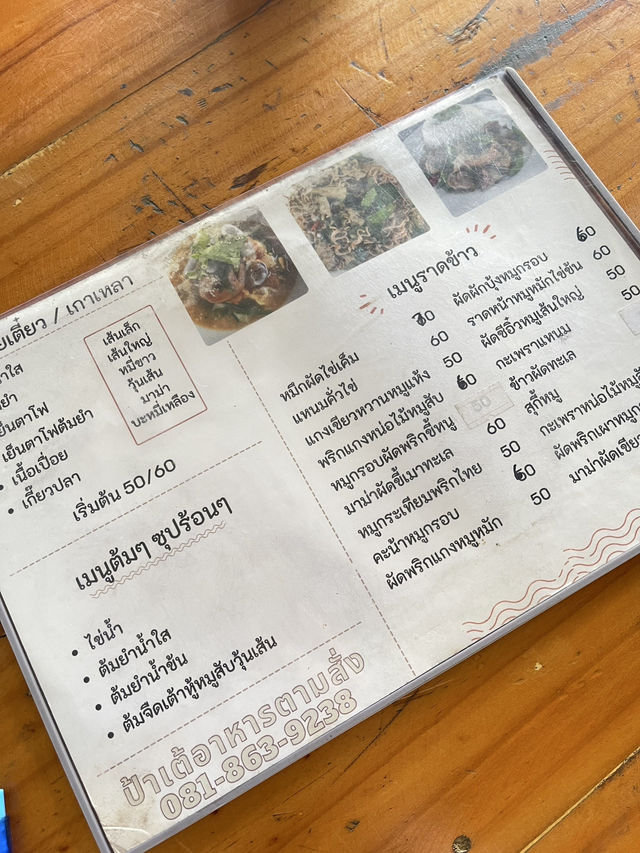 ยเตี๋ยว / เกาเหลา
ยำ
เย็นตาโฟ
เย็นตาโฟต้มยำ
• เนื้อเปื่อย
• เกี๊ยวปลา
เริ่มต้น 50/60
เส้นเล็ก
เส้นใหญ่
หมี่ขาว
วุ้นเส้น
มาม่า
บะหมี่เหลือง
เมนูต้มๆ ซุปร้อนๆ
• ไข่น้ำ
• ต้มยำน้ำใส
• ต้มยำน้ำข้น
• ต้มจืดเต้าหู้หมูสับวุ้นเส้น
ป้าเต้อาหารตามสั่ง
081-863-9238
เมนูราดข้าว
หมึกผัดไข่เค็ม 70
แหนมคั่วไข่ 60
แกงเขียวหวานหมูแห้ง 50
พริกแกงหน่อไม้หมูสับ 60
หมูกรอบผัดพริกขี้หนู 50
มาม่าผัดขี้เมาทะเล 60
หมูกระเทียมพริกไทย 50
คะน้าหมูกรอบ 60
ผัดพริกแกงหมูหมัก 50
ผัดผักบุ้งหมูกรอบ 60
ราดหน้าหมูหมักไข่ข้น 60
ผัดซีอิ๊วหมูเส้นใหญ่ 50
กะเพราแหนม 50
ข้าวผัดทะเล
สุกี้หมู
กะเพราหน่อไม้หมู
ผัดพริกเผาหมู
มาม่าผัดเขีย